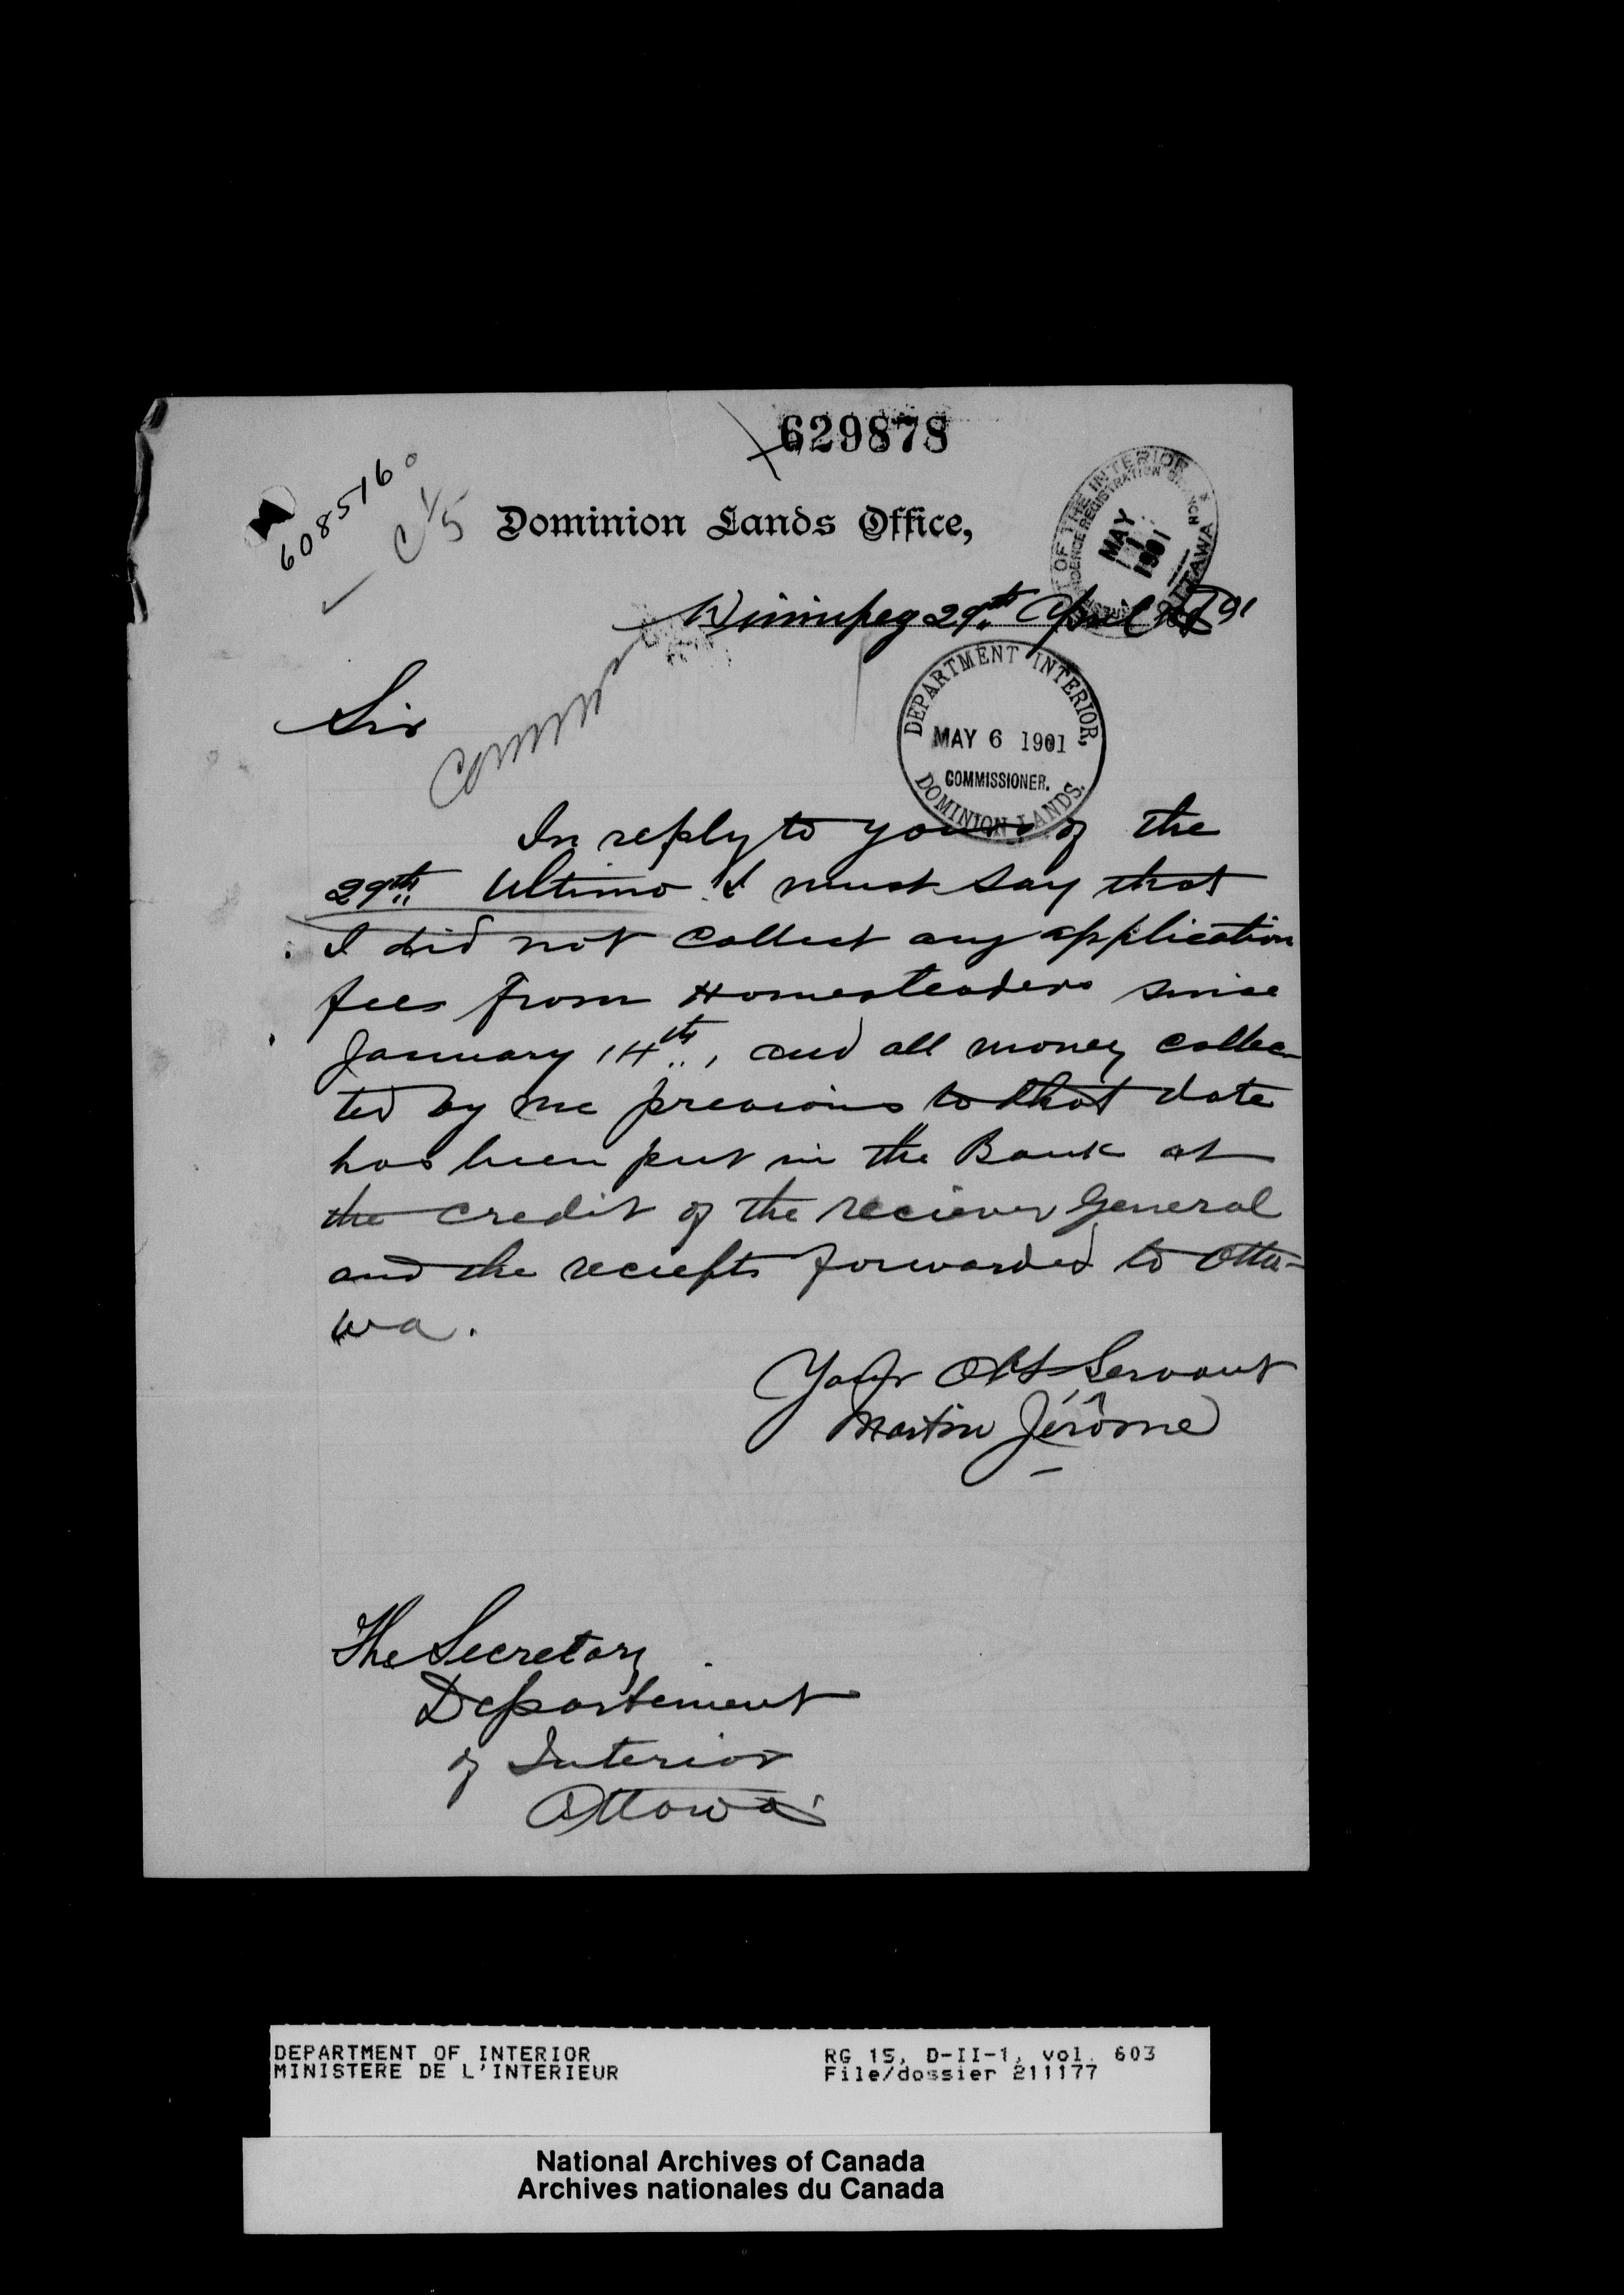 629878
608516
C 1/5
Dominion Lands Office,
OF THE INTERIOR
REGISTRATION BRANCH
MAY 1 1901
OTTAWA
Winnipeg 29th April 1901
DEPARTMENT INTERIOR,
MAY 6 1901
COMMISSIONER.
DOMINION LANDS.
Sir
In reply to yours of the
29th Ultimo I must say that
I did not collect any application
fees from Homesteaders since
January 14th, and all money collec-
ted by me previous to that date
has been put in the Bank at
the credit of the reciever General
and the reciepts forwarded to Otta-
wa.
Your Obt Servant
Martin Jérôme
The Secretary
Departement
of Interior
Ottawa
DEPARTMENT OF INTERIOR
MINISTERE DE L'INTERIEUR
RG 15, D-II-1, vol. 603
File/dossier 211177
National Archives of Canada
Archives nationales du Canada